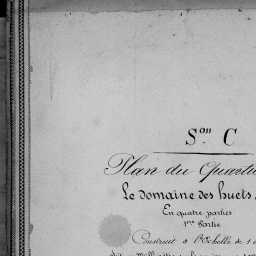 S.on C
Plan du Quarti
Le domaine des huets
En quatre parties
1ere Partie
Construit à l'Echelle de 1 à